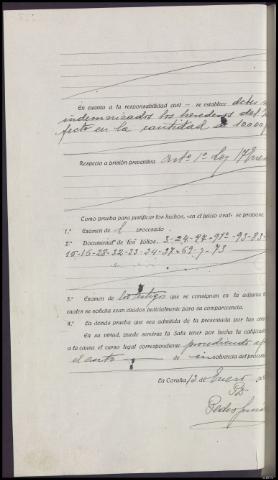 En cuanto a la responsabilidad civil — se establece debe
indemnizados los herederos del
fecto en la cantidad de 10.000
Respecto a prisión preventiva arto 1º Ley 17 Enero
Como prueba para justificar los hechos, «en el juicio oral» se propone
1.º Examen del procesado.
2.º Documental de los folios. 3-24-27-
15-16-28-32-23-34-37-69-y-73
3.º Examen de los testigos que se consignan en la adjunta
cuales se solicita sean citados judicialmente para su comparecencia.
4.º La demás prueba que sea admitida de la presentada por las
En su virtud, puede servirse la Sala tener por hecha la calificación
a la causa el curso legal correspondiente procediendo
el auto insolvencia del
En Coruña 13 de Enero de
Pedro